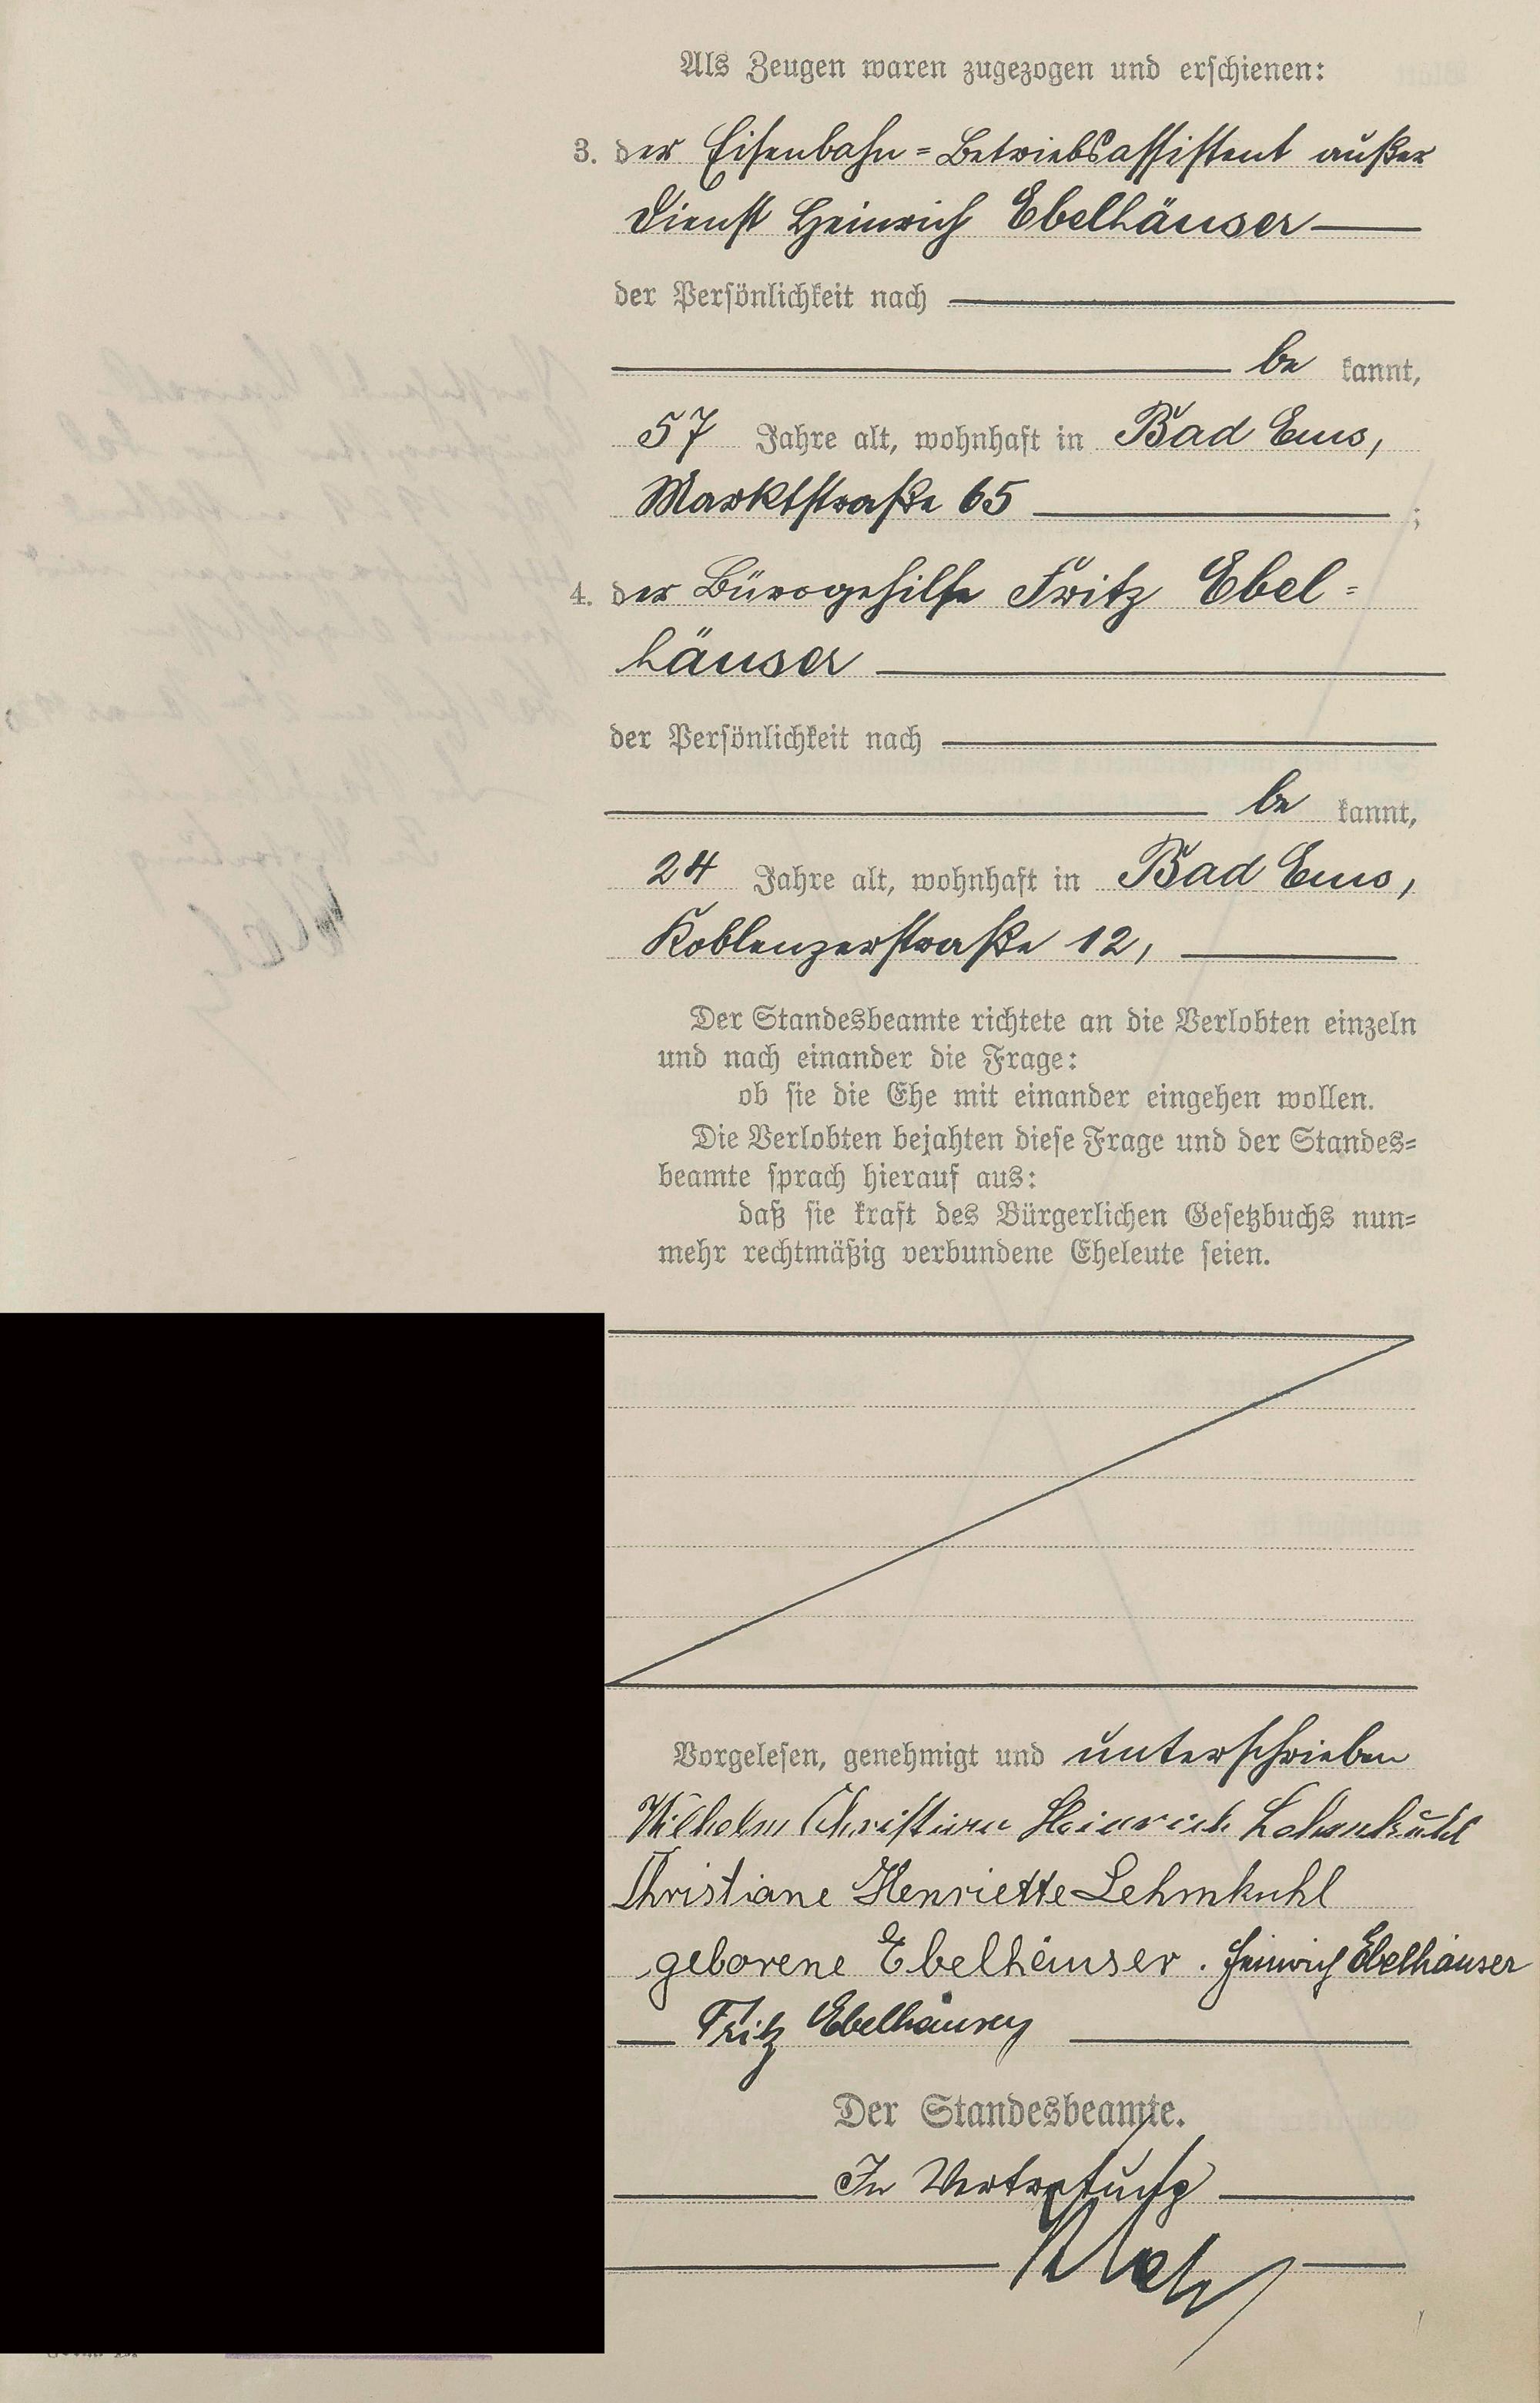 Als Zeugen waren zugezogen und erschienen:
3. der Eisenbahn=Betriebsassistent außer
Dienst Heinrich Ebelhäuser
der Persönlichkeit nach
be kannt,
57 Jahre alt, wohnhaft in Bad Ems,
Marktstraße 65 ;
4. der Bürogehilfe Fritz Ebel=
häuser
der Persönlichkeit nach
be kannt,
24 Jahre alt, wohnhaft in Bad Ems,
Koblenzerstraße 12,
Der Standesbeamte richtete an die Verlobten einzeln
und nach einander die Frage:
ob sie die Ehe mit einander eingehen wollen.
Die Verlobten bejahten diese Frage und der Standes=
beamte sprach hierauf aus:
daß sie kraft des Bürgerlichen Gesetzbuchs nun=
mehr rechtmäßig verbundene Eheleute seien.
Vorgelesen, genehmigt und unterschrieben
Wilhelm Christian Heinrich Lehmkuhl
Christiane Henriette Lehmkuhl
geborene Ebelhäuser. Heinrich Ebelhäuser
Fritz Ebelhäuser
Der Standesbeamte.
In Vertretung